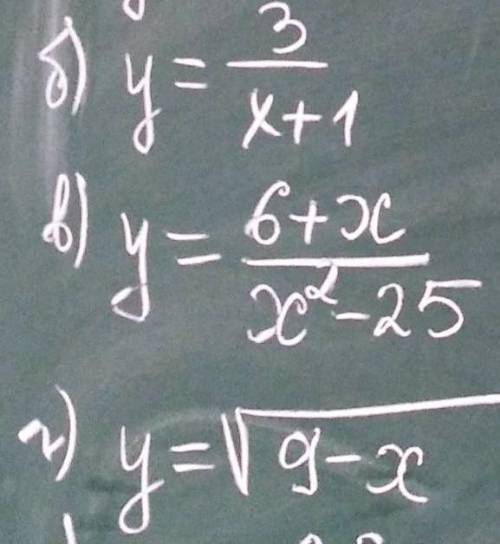 б) y = 3/(x+1)
в) y = (6+x)/(x²-25)
г) y = √(9-x)